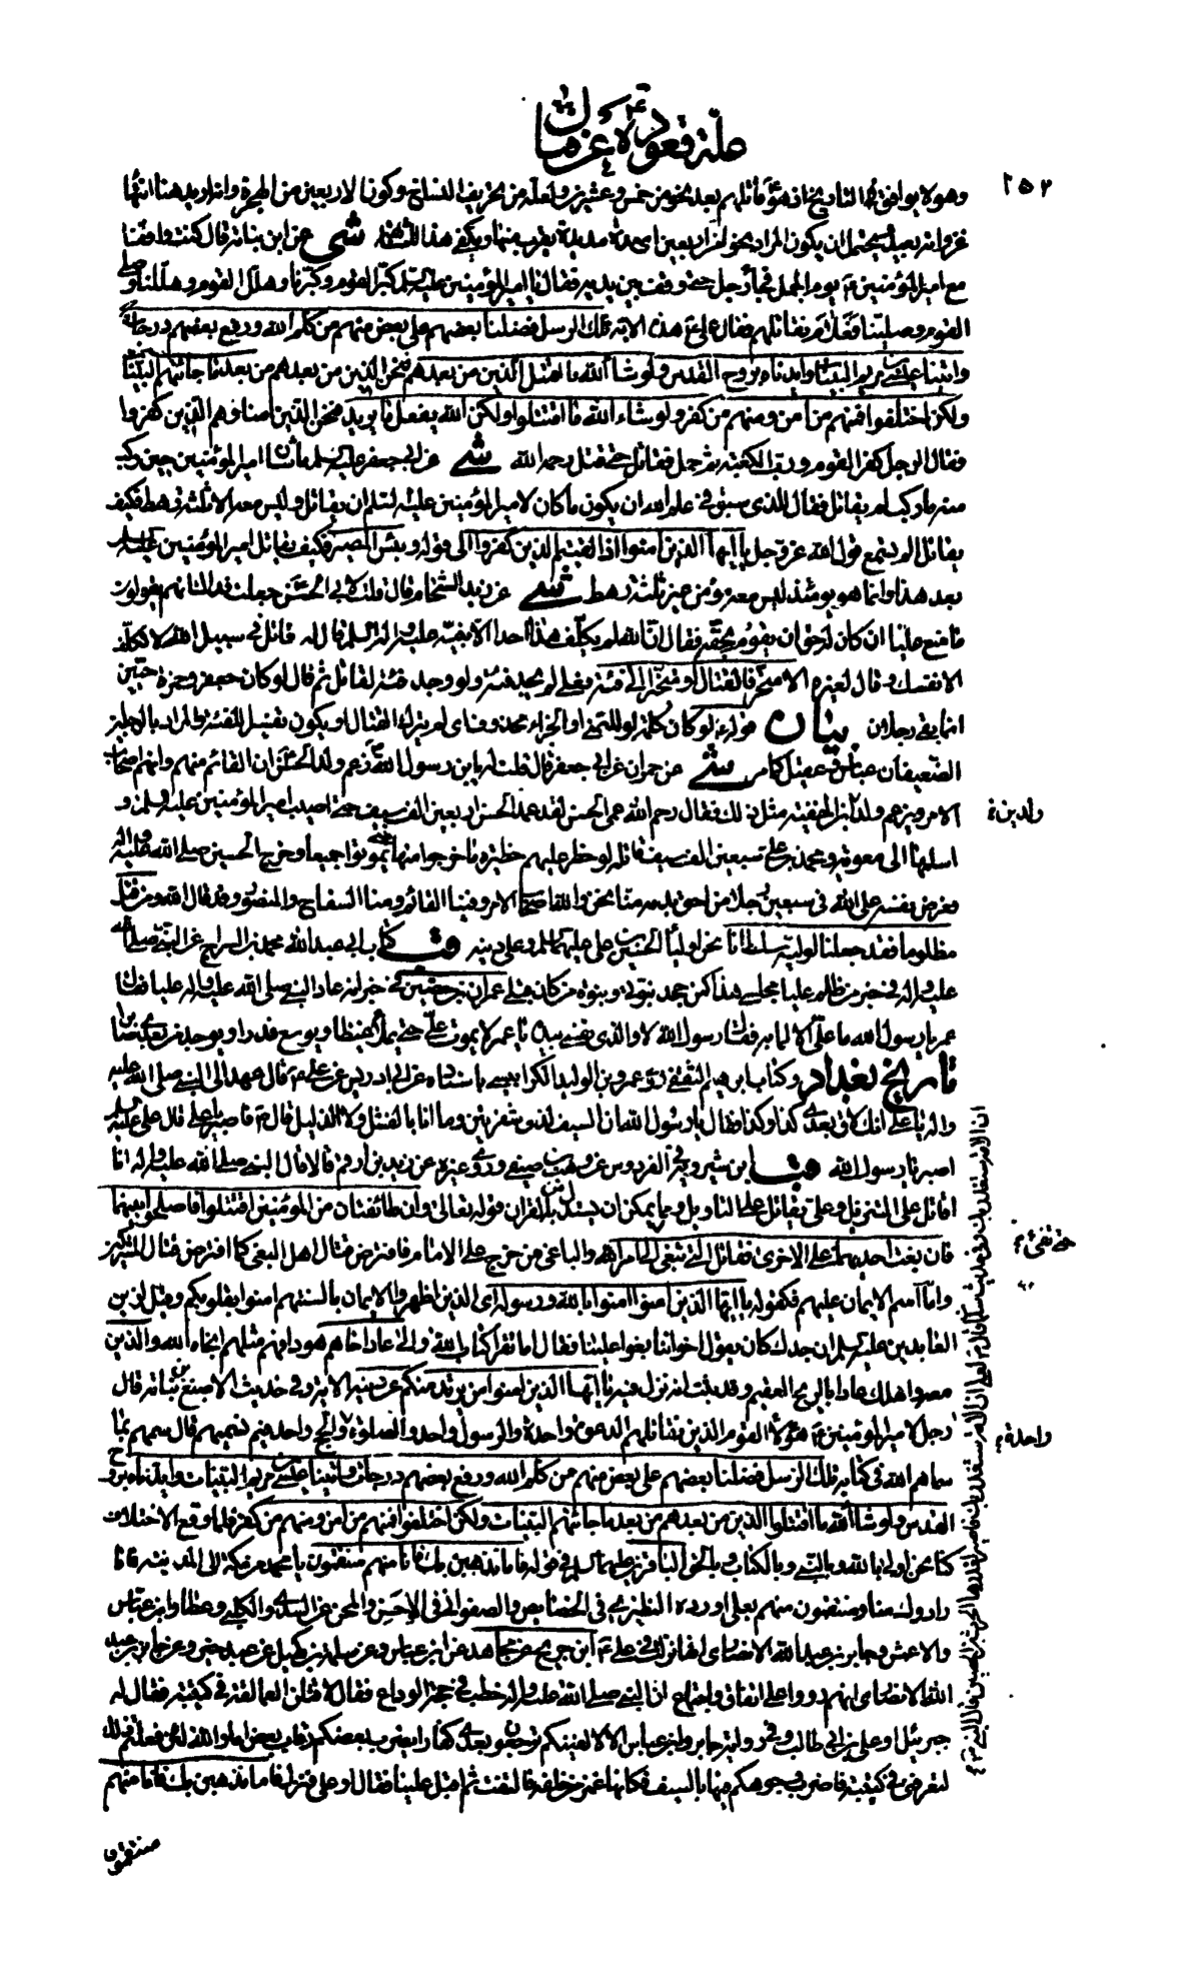 علة قعوده عن قتال
١٥٢
وهو لا يوافق التاريخ اذ هؤلاء قاتلهم بعد نحو من خمس وعشرين ولعله من تحريف النساخ وكون الاربعين من الهجرة وانه اريد هنا انتهاء
غزواته بعيد ويحتمل ان يكون المراد بحولن اربعين اى مدة مديدة يقرب منها ويكفى هذا للتشبيه شى عن ابن نباتة قال كنت واقفا
مع امير المؤمنين ع يوم الجمل فجاء رجل حتى وقف بين يديه فقال يا امير المؤمنين عليك السلام كبر القوم وكبرنا وهلل القوم وهللنا وصلى
القوم وصلينا فعلام نقاتلهم فقال على هذه الاية تلك الرسل فضلنا بعضهم على بعض منهم من كلم الله ورفع بعضهم درجات
واتينا عيسى بن مريم البينات وايدناه بروح القدس ولو شاء الله ما اقتتل الذين من بعدهم فنحن الذين من بعدهم من بعد ما جائتهم البينات
ولكن اختلفوا فمنهم من امن ومنهم من كفر ولو شاء الله ما اقتتلوا ولكن الله يفعل ما يريد فنحن الذين امنا وهم الذين كفروا
فقال الرجل كفر القوم ورب الكعبة ثم حمل فقاتل حتى قتل رحمه الله شى عن ابى جعفر عليه السلم ما شان امير المؤمنين حين ركب
منه ما ركب لم يقاتل فقال للذى سبق فى علم الله ان يكون ما كان لامير المؤمنين عليه السلم ان يقاتل وليس معه الا ثلثة رهط فكيف
يقاتل الم يسمع قول الله عز وجل يا ايها الذين امنوا اذا لقيتم الذين كفروا الى قوله وبئس المصير فكيف يقاتل امير المؤمنين عليه السلم
بعد هذا وانما هو يومئذ ليس معه مؤمن غير ثلثة رهط شى عن زيد الشحام قال قلت لابى الحسن جعلت فداك انهم يقولون
ما منع عليا ان كان له حق ان يقوم بحقه فقال ان الله لم يكلف هذا احدا الا نبيه عليه واله السلم قال له قاتل فى سبيل الله لا تكلف
الا نفسك وقال لغيره الا متحرفا لقتال او متحيزا الى فئة فعلى لم يجد فئة ولو وجد فئة لقاتل ثم قال لو كان جعفر وحمزة حيين
انما بقى رجلان بيان قوله لو كان كلمة لو للتمنى او الجزاء محذوف اى لم يترك القتال او يكون تفسير للفئة والمراد بالرجلين
الضعيفان عباس وعقيل كما مر شى عن حمران عن ابى جعفر قال قلت له يا بن رسول الله زعم ولد الحسن ان القائم منهم وانهم اصحاب
الامر ويزعم ولد ابن الحنفية مثل ذلك فقال رحم الله عمى الحسن لقد غمد الحسن اربعين الف سيف حين اصيب امير المؤمنين عليه السلم و
اسلمها الى معوية ومحمد بن على سبعين الف سيف قاتله لو حظر عليهم حظيرة ما خرجوا منها حتى يموتوا جميعا وخرج الحسين صلى الله عليه
فعرض نفسه على الله فى سبعين رجلا من احق بدمه منا نحن والله اصحاب الامر وفينا القائم ومنا السفاح والمنصور وقد قال الله ومن قتل
مظلوما فقد جعلنا لوليه سلطانا نحن اولياء الحسين بن على عليهما السلم وعلى دينه قب كتاب ابى عبد الله محمد بن السراج عن النبى صلى الله
عليه واله فى خبر من ظلم عليا مجلسى هذا كمن جحد نبوتى ونبوة من كان قبلى عمران بن حصين فى خبر انه عاد النبى صلى الله عليه واله عليا فقال
عمر يا رسول الله ما على الا لما به فقال رسول الله لا والذى نفسى بيده يا عمر لا يموت على حتى يملأ غيظا ويوسع غدرا ويوجد من بعدى صابرا
تاريخ بغداد وكتاب ابرهيم الثقفى روى عمرو بن الوليد الكرابيسى باسناده عن ابى ادريس عن على ع قال عهد الى النبى صلى الله عليه
واله يا على انك لاق بعدى كذا وكذا فقال يا رسول الله ان السيف لذو شفرتين وما انا بالفشل ولا الذليل قال ع فاصبر يا على قال على عليه السلم
اصبر يا رسول الله قب ابن شيرويه فى الفردوس عن وهب بن صيفى وروى غيره عن زيد بن ارقم قالا قال النبى صلى الله عليه واله انا
اقاتل على التنزيل وعلى يقاتل على التاويل ومما يمكن ان يستدل بالقران قوله تعالى وان طائفتان من المؤمنين اقتتلوا فاصلحوا بينهما
فان بغت احديهما على الاخرى فقاتلوا التى تبغى الى امر الله والباغى من خرج على الامام فافترض قتال اهل البغى كما افترض قتال المشركين
واما اسم الايمان عليهم فكقوله يا ايها الذين امنوا امنوا بالله ورسوله اى الذين اظهروا الايمان بالسنتهم امنوا بقلوبكم وقيل لزين
العابدين عليه السلم ان جدك كان يقول اخواننا بغوا علينا فقال اما تقرأ كتاب الله والى عاد اخاهم هودا فهم مثلهم انجاه الله والذين
معه واهلك عادا بالريح العقيم وقد ثبت انه نزل فيه يا ايها الذين امنوا من يرتد منكم عن دينه الاية وفى حديث الاصبغ بن نباتة قال
رجل لامير المؤمنين ع هؤلاء القوم الذين نقاتلهم الدعوة واحدة والرسول واحد والصلوة والحج واحد فبم نسميهم قال سمهم بما
سماهم الله فى كتابه تلك الرسل فضلنا بعضهم على بعض منهم من كلم الله ورفع بعضهم درجات واتينا عيسى بن مريم البينات وايدناه بروح
القدس ولو شاء الله ما اقتتل الذين من بعدهم من بعد ما جائتهم البينات ولكن اختلفوا فمنهم من امن ومنهم من كفر فلما وقع الاختلاف
كنا نحن اولى بالله وبالنبى وبالكتاب وبالحق الباقر عليه السلم فى قوله فاما نذهبن بك فانا منهم منتقمون يا محمد من مكة الى المدينة فانا
رادوك منها ومنتقمون منهم بعلى اورده النطنزى فى الخصايص والصفوانى فى الاحن والمحن عن السدى والكلبى وعطا وابن عباس
والاعمش وجابر بن عبد الله الانصارى انها نزلت فى على ع ابن جريح عن مجاهد عن ابن عباس وعن سلمة بن كهيل عن عبد خير وعن جابر بن عبد
الله الانصارى انهم رووا على اتفاق واجتماع ان النبى صلى الله عليه واله خطب فى حجة الوداع فقال لاقتلن العمالقة فى كتيبة فقال له
جبرئيل او على بن ابى طالب وفى رواية جابر وابن عباس الا لالفينكم ترجعون بعدى كفارا يضرب بعضكم رقاب بعض اما والله لئن فعلتم ذلك
لتعرفنى فى كتيبة فاضرب وجوهكم فيها بالسيف فكانه غمز من خلفه فالتفت ثم اقبل علينا فقال او على فنزل فاما نذهبن بك فانا منهم
منتقمون
ولد بن
حتى تفئ
واحدة